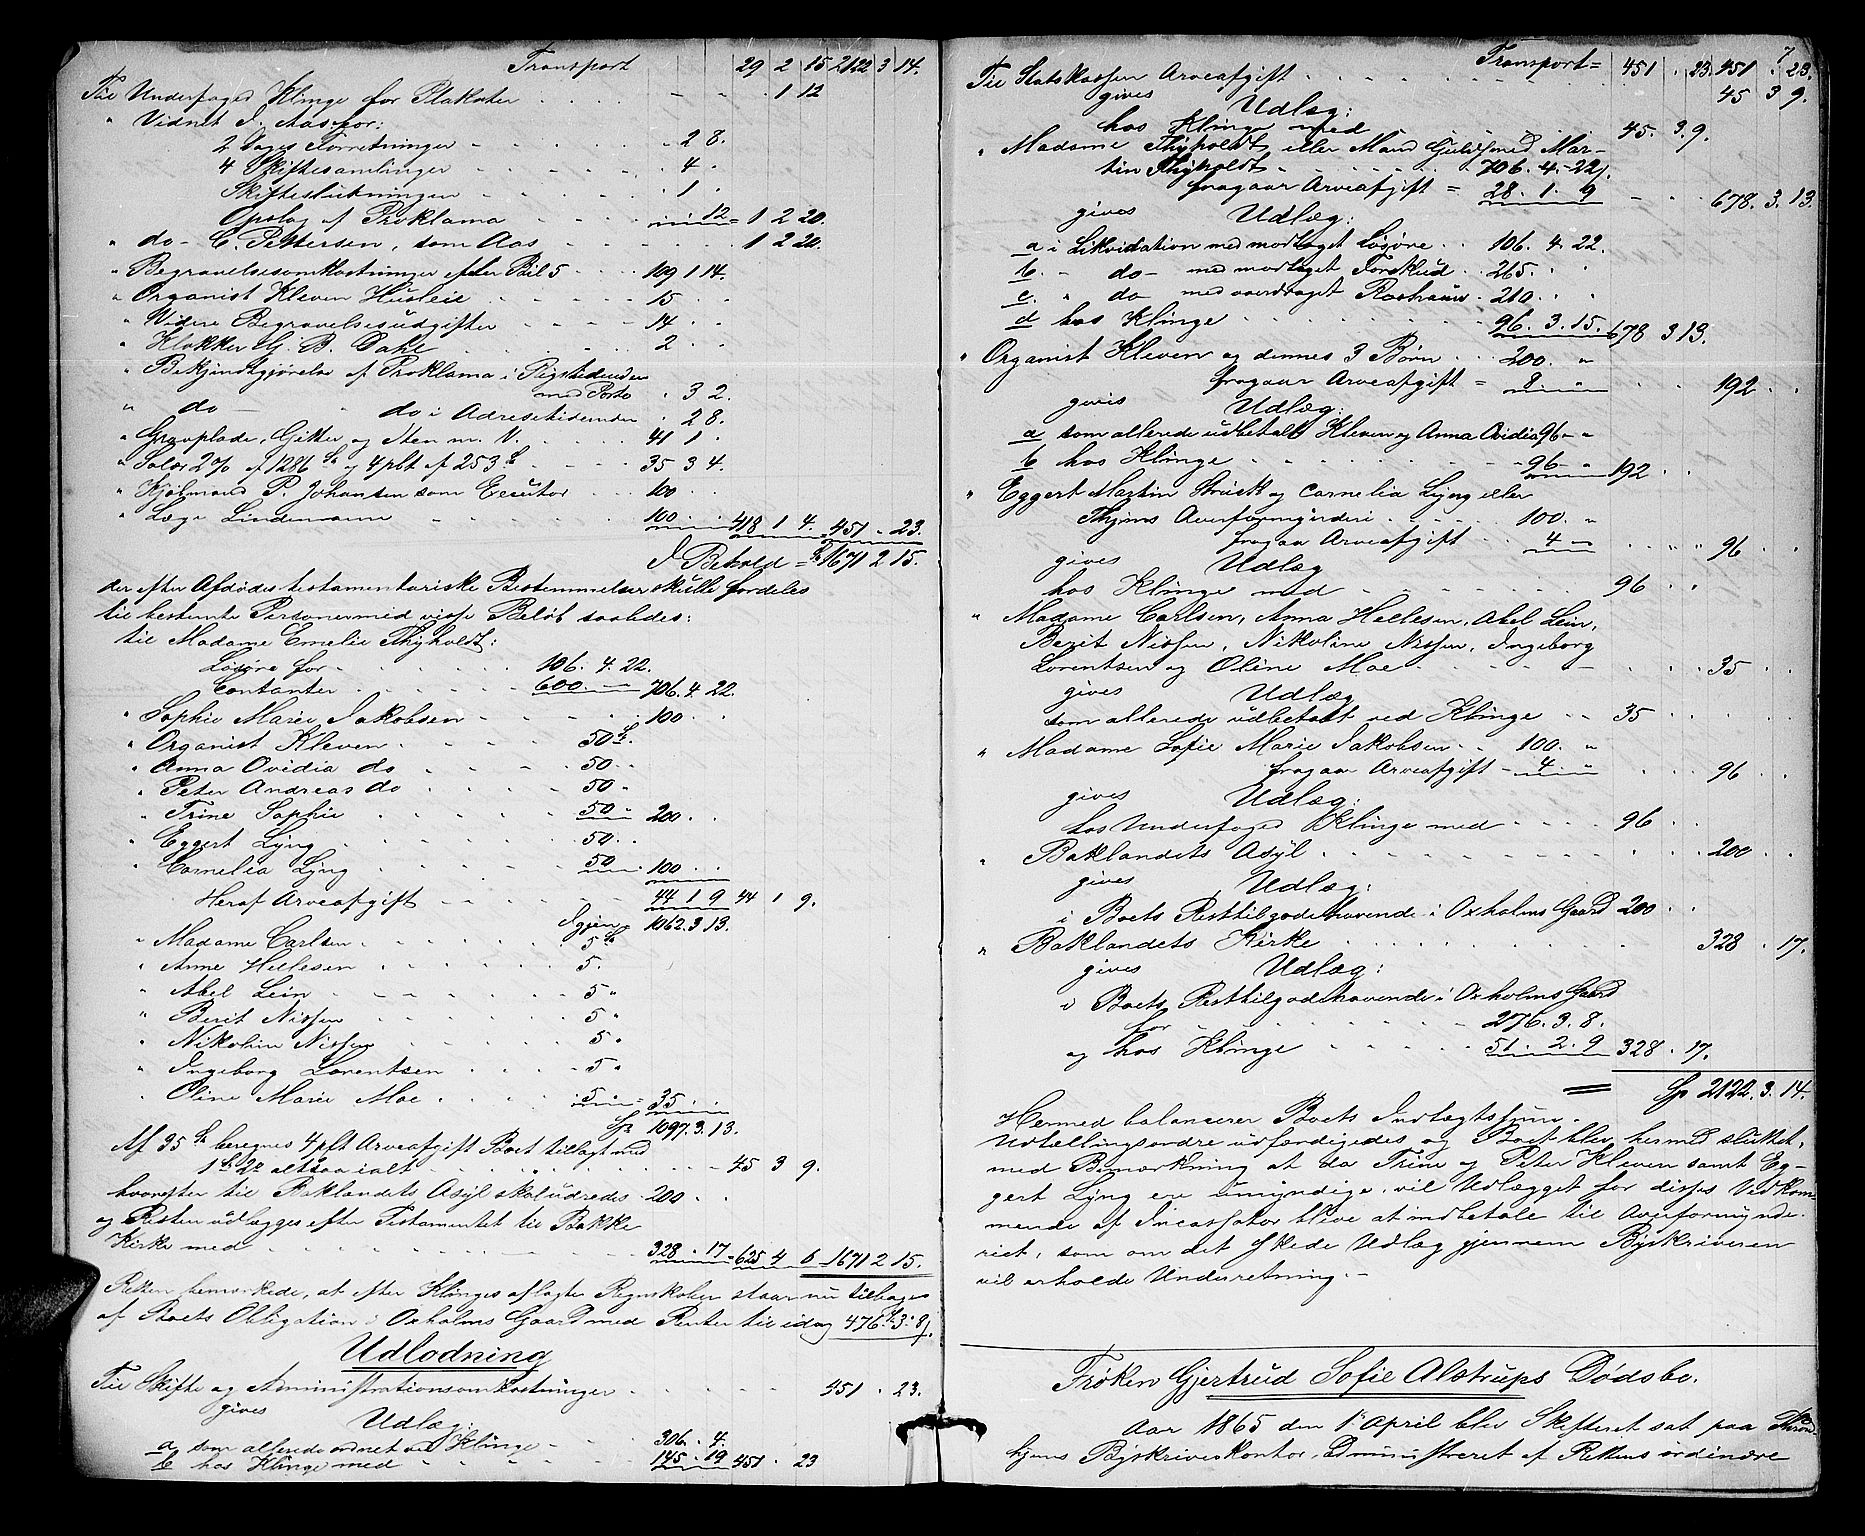 Transport 29 2 15 2122 3 14.
Til Underfoged Klinge for Plakater . . . . 1 12
" Vidnet J. Aas for:
2 Dages Forretninger - - - 2 8.
4 Skiftesamlinger - - - 4 .
Skifteslutningen - - - 1 .
Opslag af Proklama - - - 12 = 1 2 20.
" do - C. Pettersen, som Aas - - - 1 2 20.
" Begravelsesomkostninger efter Bil 5 - - 109 1 14.
" Organist Kleven Husleie - - - 15 . .
" Videre Begravelsesudgifter - - - 14 . .
" Klokker G. B. Dahl - - - 2 . .
" Bekjendtgjørelse af Proklama i Rigstidenden
med Porto . 3 2.
" do - " do i Adressetidenden . 2 8.
" Gravplade, Gitter og Sten m. V. - - - 41 1 .
" Salær 2% af 1286 Sp og 4 pCt af 253 Sp - - - 35 3 4.
" Kjøbmand P. Johansen som Executor - - - 100 . .
" Læge Lindemann - - - 100 . . 418 1 4. 451 . 23.
I Behold = Sp 1671 2 15.
der efter Afdødes testamentariske Bestemmelser skulle fordeles
til bestemte Personer med visse Beløb saaledes:
til Madame Emelie Thyholdt:
Løsøre for - - - 106. 4. 22.
Contanter - - - 600 - - 706. 4. 22
" Sophie Marie Jakobsen - - - 100 . .
" Organist Kleven - - - 50 Sp.
" Anna Ovidia do - - - 50 . .
" Peter Andreas do - - - 50 "
" Trine Sophie - - - 50 " 200 . .
" Eggert Lyng - - - 50 . .
" Cornelia Lyng - - - 50 100 . .
Heraf Arveafgift - - - 44 1 9 44 1 9.
Igjen 1062. 3. 13.
" Madame Carlsen - - - 5 Sp
" Anne Hellesen - - - 5.
" Abel Lein - - - 5 "
" Berit Nissen - - - 5 "
" Nikoline Nissen - - - 5 "
" Ingeborg Lorentsen - - - 5 "
" Oline Marie Moe - - - 5 - 35 . .
Sp 1097. 3. 13.
Af 35 Sp beregnes 4 pCt Arveafgift Boet tillagt med
1 Sp 2 altsaa ialt - - - 45 3 9.
hvorefter til Baklandets Asyl skal udredes - 200 . .
og Resten udlægges efter Testamentet til Bakke
Kirke med - - - 328 . 17 = 625 4 6 1671 2 15.
Retten bemærkede, at efter Klinges aflagte Regnskaber staar nu tilbage
af Boets Obligation i Oxholms Gaard med Renter til idag 476 Sp 3. 8 s.
Udlodning
Til Skifte og Administrationsomkostninger - - - 451 . 23.
gives
Udlæg:
a som allerede ordnet ved Klinge - - - 306. 4.
b hos Klinge med - - - 145. 19 451 . 23
7
Transport = 451 . 23. 451 . 23.
Til Statskassen Arveafgift - - - 45 3 9.
gives Udlæg:
hos Klinge med - - - 45. 3. 9.
" Madame Thyholdt eller Mand Guldsmed Mar-
tin Thyholdt - - - 706. 4. 22 s.
fragaar Arveafgift = 28. 1. 9 - 678. 3. 13.
gives Udlæg:
a i Likvidation med modtaget Løsøre . . 106. 4. 22.
b. " do - med modtaget Forskud . . 265. . .
c. " do med overdraget . 210. . .
d hos Klinge - - - 96. 3. 15. 678 3 13.
" Organist Kleven og dennes 3 Børn . . 200. "
fragaar Arveafgift = 8 - " . . 192 . .
gives Udlæg:
a som allerede udbetalt Kleven og Anna Ovidia 96 - "
b hos Klinge - - - 96 - 192 . .
" Eggert Martin Struck og Cornelia Lyng eller
Thjems Overformynderi - - - 100. "
fragaar Arveafgift - - 4 - . . 96 . .
gives Udlæg
hos Klinge med - - - 96 . "
" Madame Carlsen, Anna Hellesen, Abel Lein,
Berit Nissen, Nikoline Nissen, Ingeborg
Lorentsen og Oline Moe - - - 35 .
gives Udlæg
som allerede udbetalt ved Klinge - - 35 . .
" Madame Sofie Marie Jakobsen . . 100. "
fragaar Arveafgift - 4. " . . 96 . .
gives Udlæg:
hos Underfoged Klinge med - - - 96 . .
" Baklandets Asyl - - - 200 . .
gives Udlæg:
i Boets Resttilgodehavende i Oxholms Gaard 200 . .
" Baklandets Kirke - - - 328 . 17.
gives Udlæg:
i Boets Resttilgodehavende i Oxholms Gaard
for - - - 276. 3. 8.
og hos Klinge - - - 51. 2. 9 328 . 17.
= Sp 2122. 3. 14.
Hermed balancerer Boets Indtægtssum.
Udtællingsordre udfærdigedes og Boet blev hermed sluttet,
med Bemærkning at da Trine og Peter Kleven samt Eg-
gert Lyng ere umyndige, vil Udlægget for disses Vedkom
mende af Incassator blive at indbetale til Overformynde-
riet, som om det skede Udlæg gjennem Byskriveren
vil erholde Underretning. -
Frøken Gjertrud Sofie Alstrups Dødsbo.
Aar 1865 den 1 April blev Skifteret sat paa Thrond-
hjems Byskriverkontor, administreret af Rettens ordinære